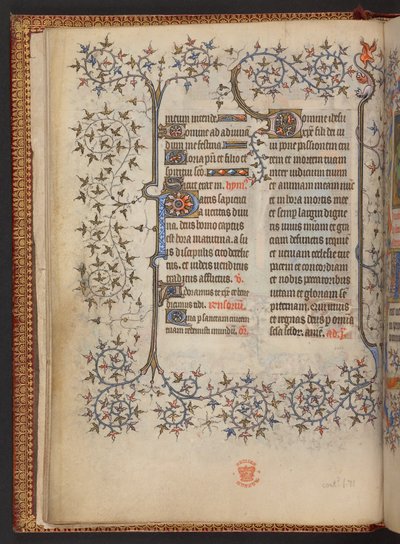 meum intende.
Domine ad adiuua
dum me festina.
Gloria pri et filio et
spiritui sco.
Sicut erat in. hymn'.
Patris sapientia
ueritas diui
na. deus homo captus
est hora matutina. a su
is discipulis cito derelic
tus. et iudeis uenditus
traditus afflictus. v.
Adoramus te xpe et bene
dicimus tibi.
Quia p sanctam crucem
tuam redemisti mundu. or.
Domine ihesu
xpe fili dei ui
ui pone passionem cru
cem et mortem tuam
inter iudicium tuum
et animam meam nunc
et in hora mortis mee
et semp largiri digne
ris uiuis miam et gra
ciam defunctis requie
et ueniam ecclesie tue
pacem et concordiam
et nobis peccatoribus
uitam et gloriam se
piternam. qui uiuis
et regnas deus p omnia
scla sclor. ame. ad. p
contd f. 71